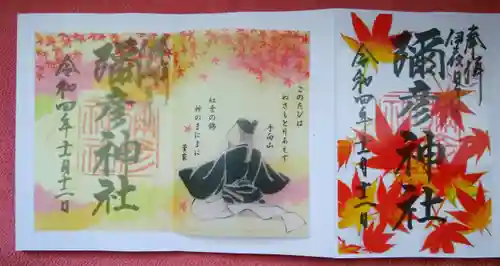 奉拝
彌彦神社
令和四年十一月十一日
このたびは
ぬさもとりあえず
手向山
紅葉の錦
神のまにまに
菅家
彌彦神社
令和四年十一月十一日